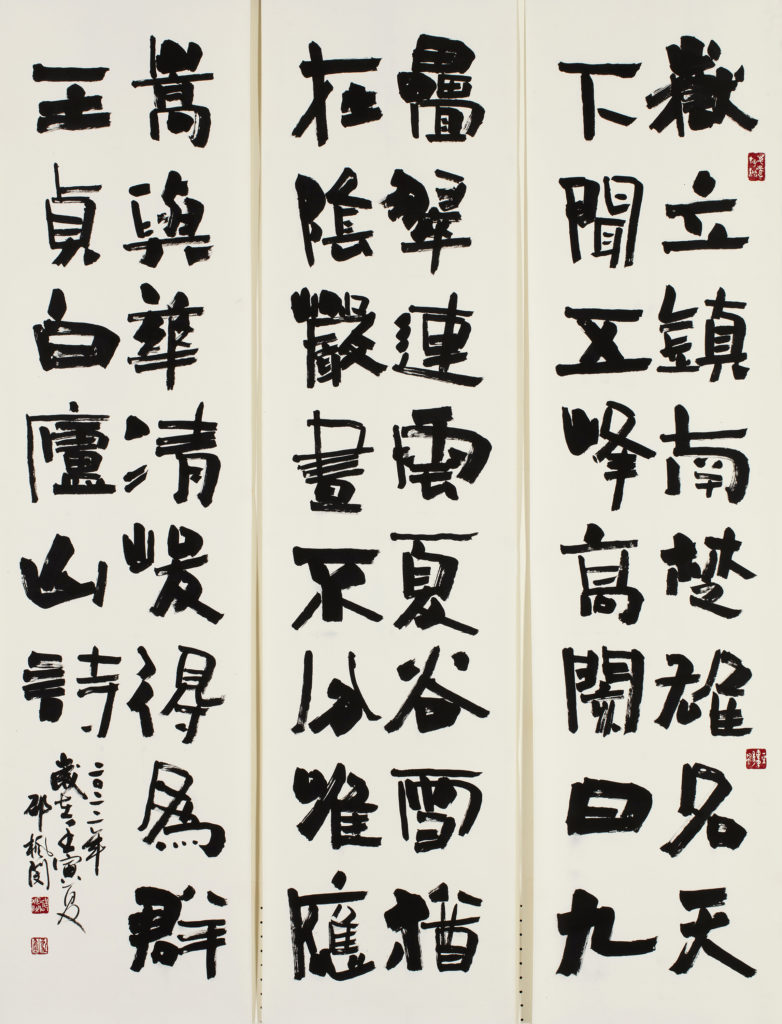 嶽立鎮南楚雄名天
下聞五峰高閡日九
疊翠連雲夏谷雪猶
在陰巖晝不分唯應
嵩與華清峻得爲群
王貞白廬山詩
二〇二二年
歲在壬寅夏
邵楓